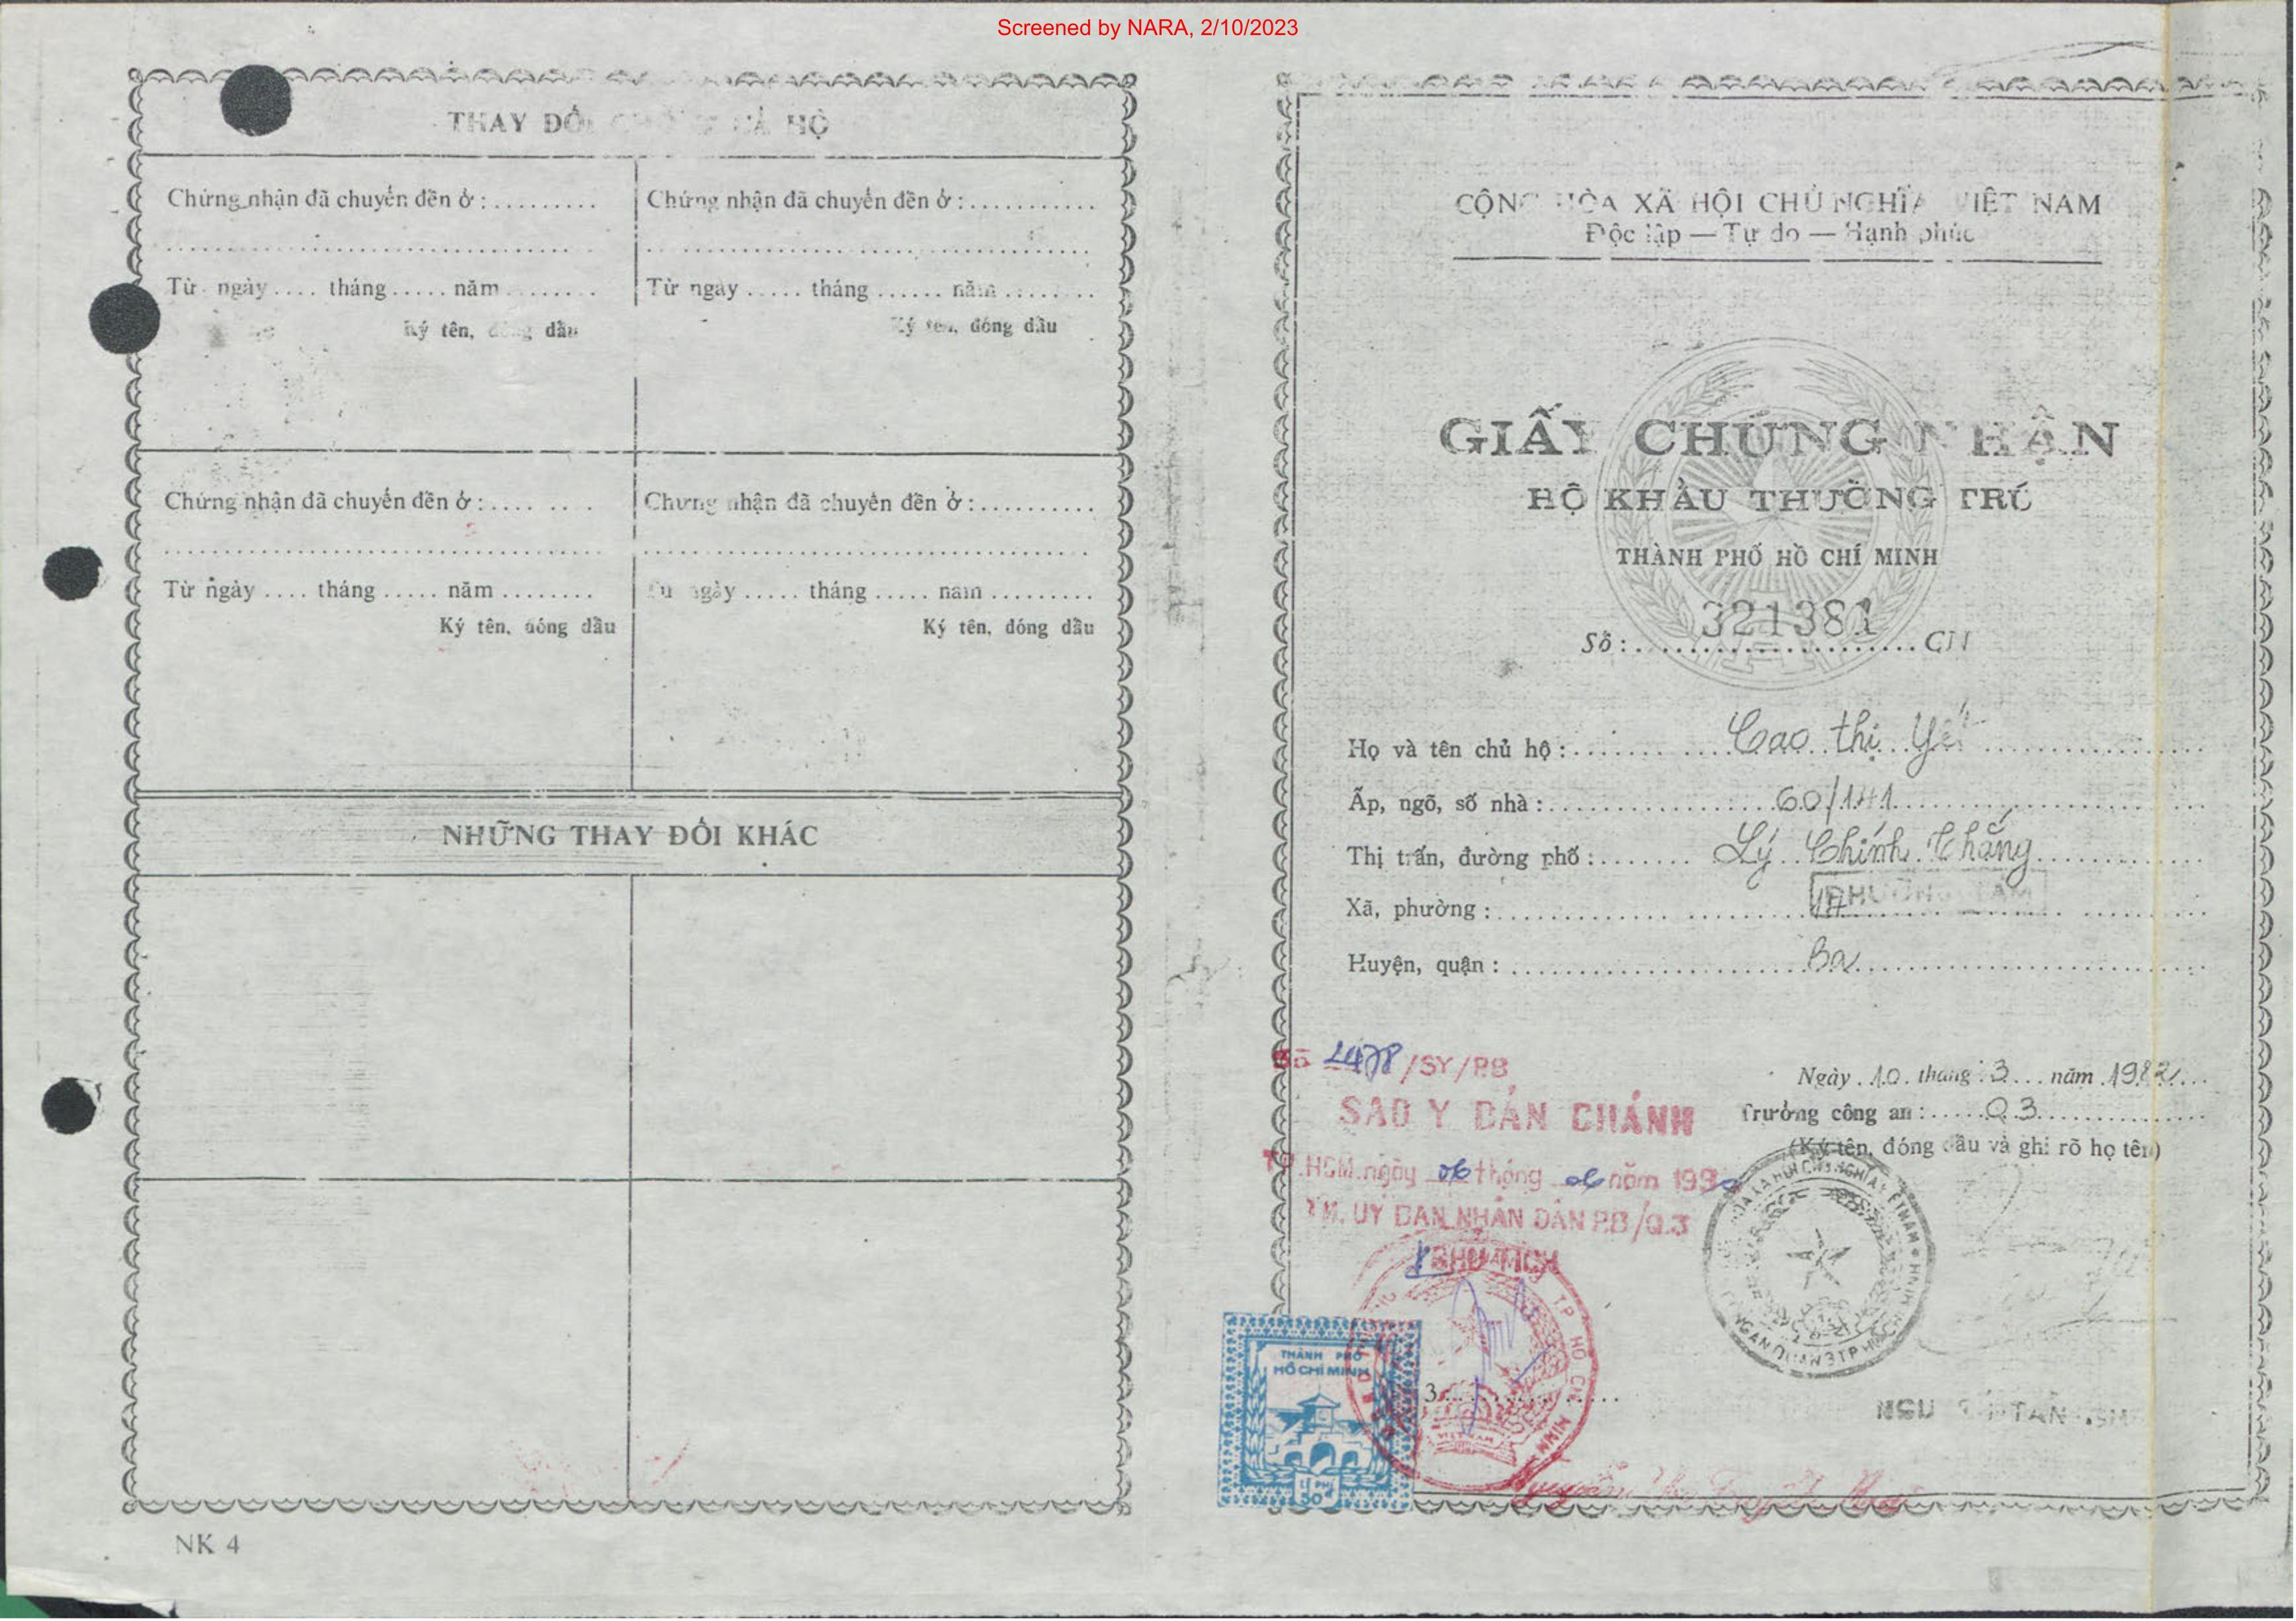 Screened by NARA, 2/10/2023
THAY ĐỔI CHỖ Ở CẢ HỘ
Chứng nhận đã chuyển đến ở :
Từ ngày .... tháng ..... năm ........
Ký tên, đóng dấu
Chứng nhận đã chuyển đến ở :
Từ ngày ..... tháng ...... năm ........
Ký tên, đóng dấu
Chứng nhận đã chuyển đến ở :
Từ ngày .... tháng ..... năm ........
Ký tên, đóng dấu
Chứng nhận đã chuyển đến ở :
Từ ngày ..... tháng ..... năm .........
Ký tên, đóng dấu
NHỮNG THAY ĐỔI KHÁC
NK 4
CỘNG HÒA XÃ HỘI CHỦ NGHĨA VIỆT NAM
Độc lập — Tự do — Hạnh phúc
GIẤY CHỨNG NHẬN
HỘ KHẨU THƯỜNG TRÚ
THÀNH PHỐ HỒ CHÍ MINH
Số : 321381 CN
Họ và tên chủ hộ : Cao thị
Ấp, ngõ, số nhà : 60/141
Thị trấn, đường phố : Lý Chính Thắng
Xã, phường : PHƯỜNG TÁM
Huyện, quận : Ba
Ngày 10 tháng 3 năm 1982
Trưởng công an : Q3
(Ký tên, đóng dấu và ghi rõ họ tên)
Số 2478/SY/P8
SAO Y BẢN CHÁNH
TP.HCM.ngày 06 tháng 06 năm 1990
TM. UỶ BAN NHÂN DÂN P.8/Q.3
THÀNH PHỐ
HỒ CHÍ MINH
LỆ PHÍ